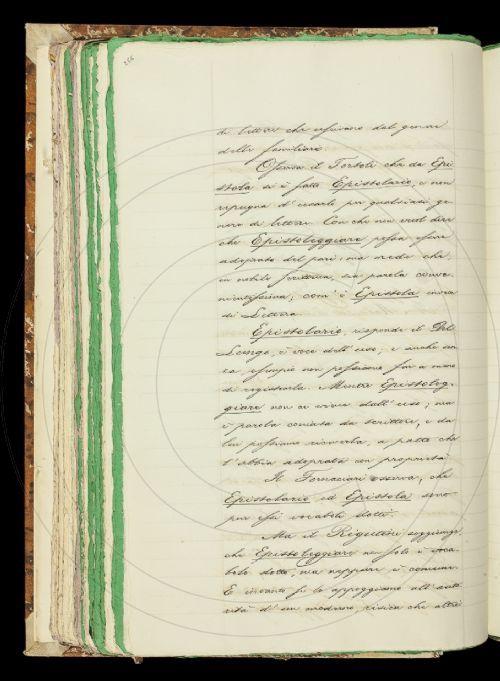 256
di lettere che usassimo dal genere
delle familiari.
Osserva il Tortoli che da Epi-
stola si è fatto Epistolario, e non
ripugna d'usarlo per qualsiasi ge-
nere di lettere. Con che non vuol dire
che Epistoleggiare possa essere
adoprato del pari; ma crede che,
in nobile scrittura, sia parola conve-
nientissima, com'è Epistola invece
di Lettera.
Epistolario, risponde il Del
Lungo, è voce dell'uso, e anche sen-
za esempio non possiamo far a meno
di registrarla. Mentre Epistoleg-
giare non ci viene dall'uso; ma
è parola coniata da scrittori, e da
loro possiamo riceverla, a patto che
l'abbia adoprata con proprietà.
Il Fornaciari osserva, che
Epistolario ed Epistola sono
pur essi vocaboli dotti.
Ma il Rigutini soggiunge
che Epistoleggiare non solo è voca-
bolo dotto, ma neppure è comune.
E intanto se lo appoggiamo all'auto-
rità d'un moderno, che altri